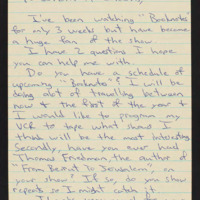 I've been watching "Booknotes"
for only 3 weeks but have become
a huge fan of the show.
I have 2 questions I hope
you can help me with.
Do you have a schedule of
upcoming "Booknotes"? I will be
doing alot of travelling between
now & the rest of the year &
I would like to program my
VCR to tape what shows I
think will be the most interesting
Secondly, have you ever had
Thomas Friedman, the author of
"From Beirut To Jerusalem, on
your show? If so, do you show
repeats so I might catch it.